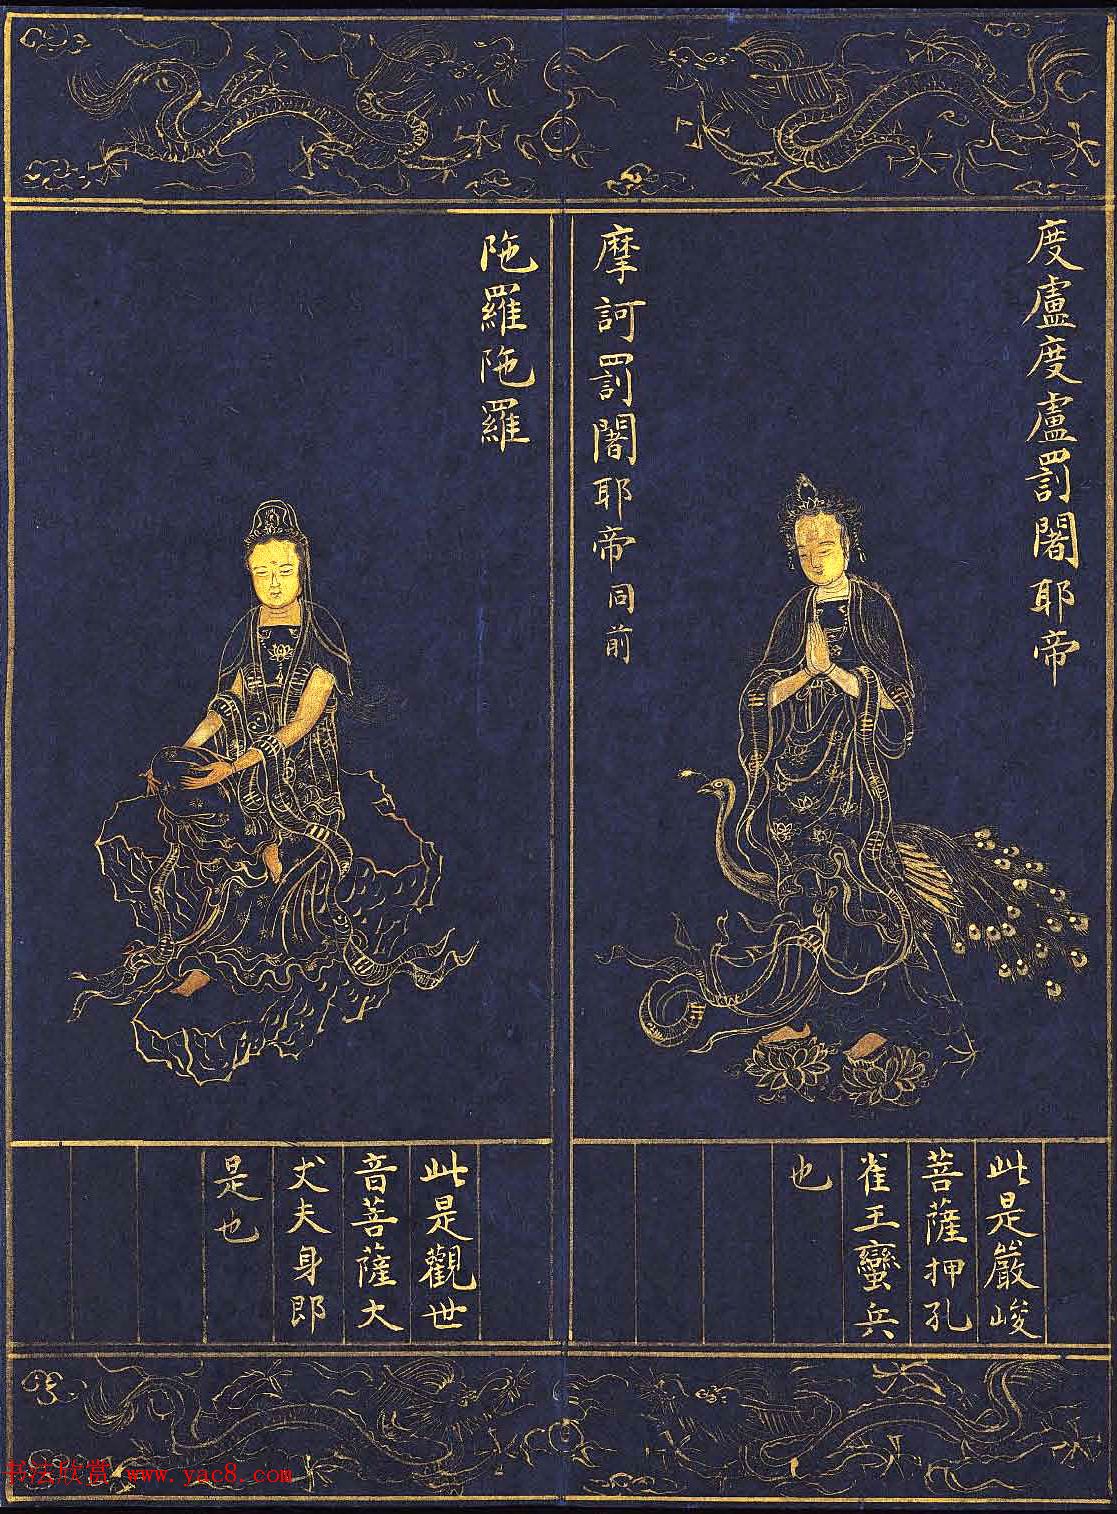 度盧度盧罰闍耶帝
摩訶罰闍耶帝同前
此是嚴峻
菩薩押孔
雀王蠻兵
也
陁羅陁羅
此是觀世
音菩薩大
丈夫身郎
是也
书法欣赏 www.yac8.com